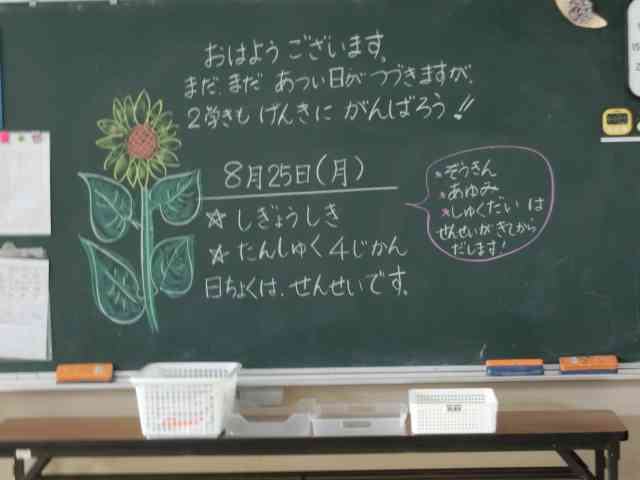 おはようございます。
まだ、まだ あつい日が つづきますが、
2学きも げんきに がんばろう!!
8月25日(月)
☆ しぎょうしき
☆ たんしゅく 4じかん
日ちょくは、せんせいです。
*ぞうきん
*あゆみ
*しゅくだい は
せんせいがきてから
だします!